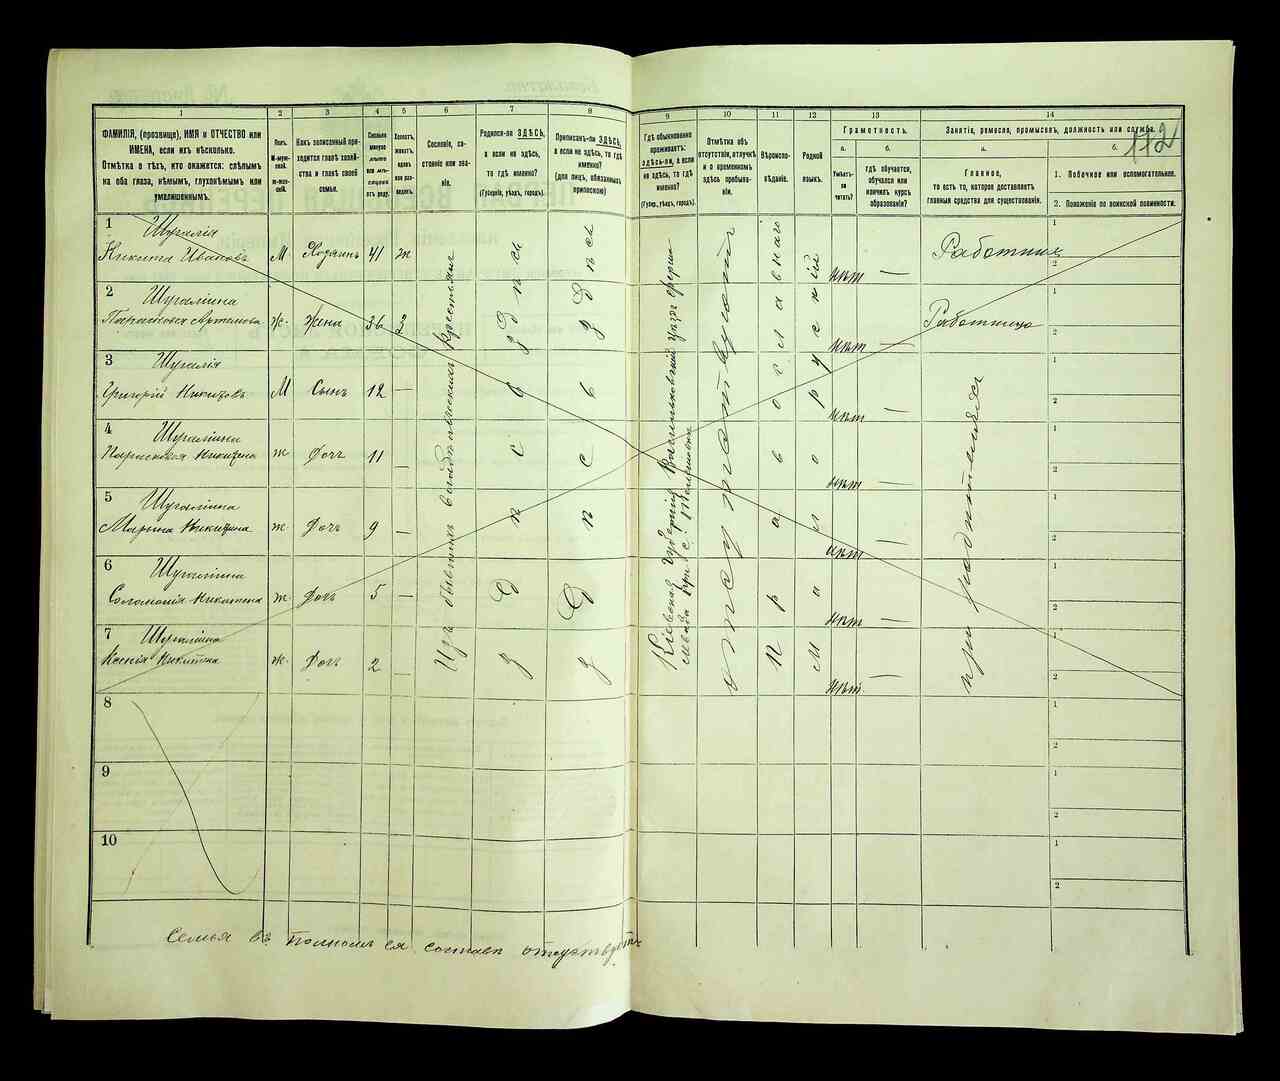 1
2
3
4
5
6
7
8
9
10
11
12
13
14
ФАМИЛІЯ, (прозвище), ИМЯ и ОТЧЕСТВО или
ИМЕНА, если ихъ нѣсколько.
Отмѣтка о тѣхъ, кто окажется: слѣпымъ
на оба глаза, нѣмымъ, глухонѣмымъ или
умалишеннымъ.
Полъ.
М-мужской.
Ж-женскій.
Какъ записанный при-
ходится главѣ хозяй-
ства и главѣ своей
семьи.
Сколько
минуло
лѣтъ
или мѣ-
сяцевъ
отъ роду.
Холостъ,
женатъ,
вдовъ
или раз-
веденъ.
Сословіе, со-
стояніе или зва-
ніе.
Родился-ли ЗДѢСЬ,
а если не здѣсь,
то гдѣ именно?
(Губернія, уѣздъ, городъ).
Приписанъ-ли ЗДѢСЬ,
а если не здѣсь, то гдѣ
именно?
(для лицъ, обязанныхъ
припискою)
Гдѣ обыкновенно
проживаетъ:
здѣсь-ли, а если
не здѣсь, то гдѣ
именно?
(Губер., уѣздъ, городъ).
Отмѣтка объ
отсутствіи, отлучкѣ
и о временномъ
здѣсь пребыва-
ніи.
Вѣроиспо-
вѣданіе.
Родной
языкъ.
Грамотность.
а.
б.
Умѣетъ-
ли
читать?
гдѣ обучается,
обучался или
кончилъ курсъ
образованія?
Занятіе, ремесло, промыселъ, должность или служба.
112
а.
б.
Главное,
то есть то, которое доставляетъ
главныя средства для существованія.
1. Побочное или вспомогательное.
2. Положеніе по воинской повинности.
1
Шугалія
Никита Ивановъ М Хозяинъ 41 ж
нѣтъ —
Работникъ
1
2
2
Шугаліина
Параскева Артемова ж Жена 36 З
нѣтъ —
Работница
1
2
3
Шугалія
Григорій Никитовъ М Сынъ 12 —
нѣтъ —
1
2
4
Шугаліина
Параскевія Никитина ж Дочь 11 —
нѣтъ —
1
2
5
Шугаліина
Марина Никитина ж Дочь 9 —
нѣтъ —
1
2
6
Шугаліина
Соломонія Никитина ж Дочь 5 —
нѣтъ —
1
2
7
Шугаліина
Ксенія Никитина ж Дочь 2 —
нѣтъ —
1
2
Изъ бывшихъ владѣльческихъ крестьянъ
здѣсь
здѣсь
Кіевская губернія Васильковскій уѣздъ
отсутствуютъ
Православнаго
Малорусскій
при родителяхъ
8
1
2
9
1
2
10
1
2
Семья въ полномъ ея составѣ отсутствуетъ